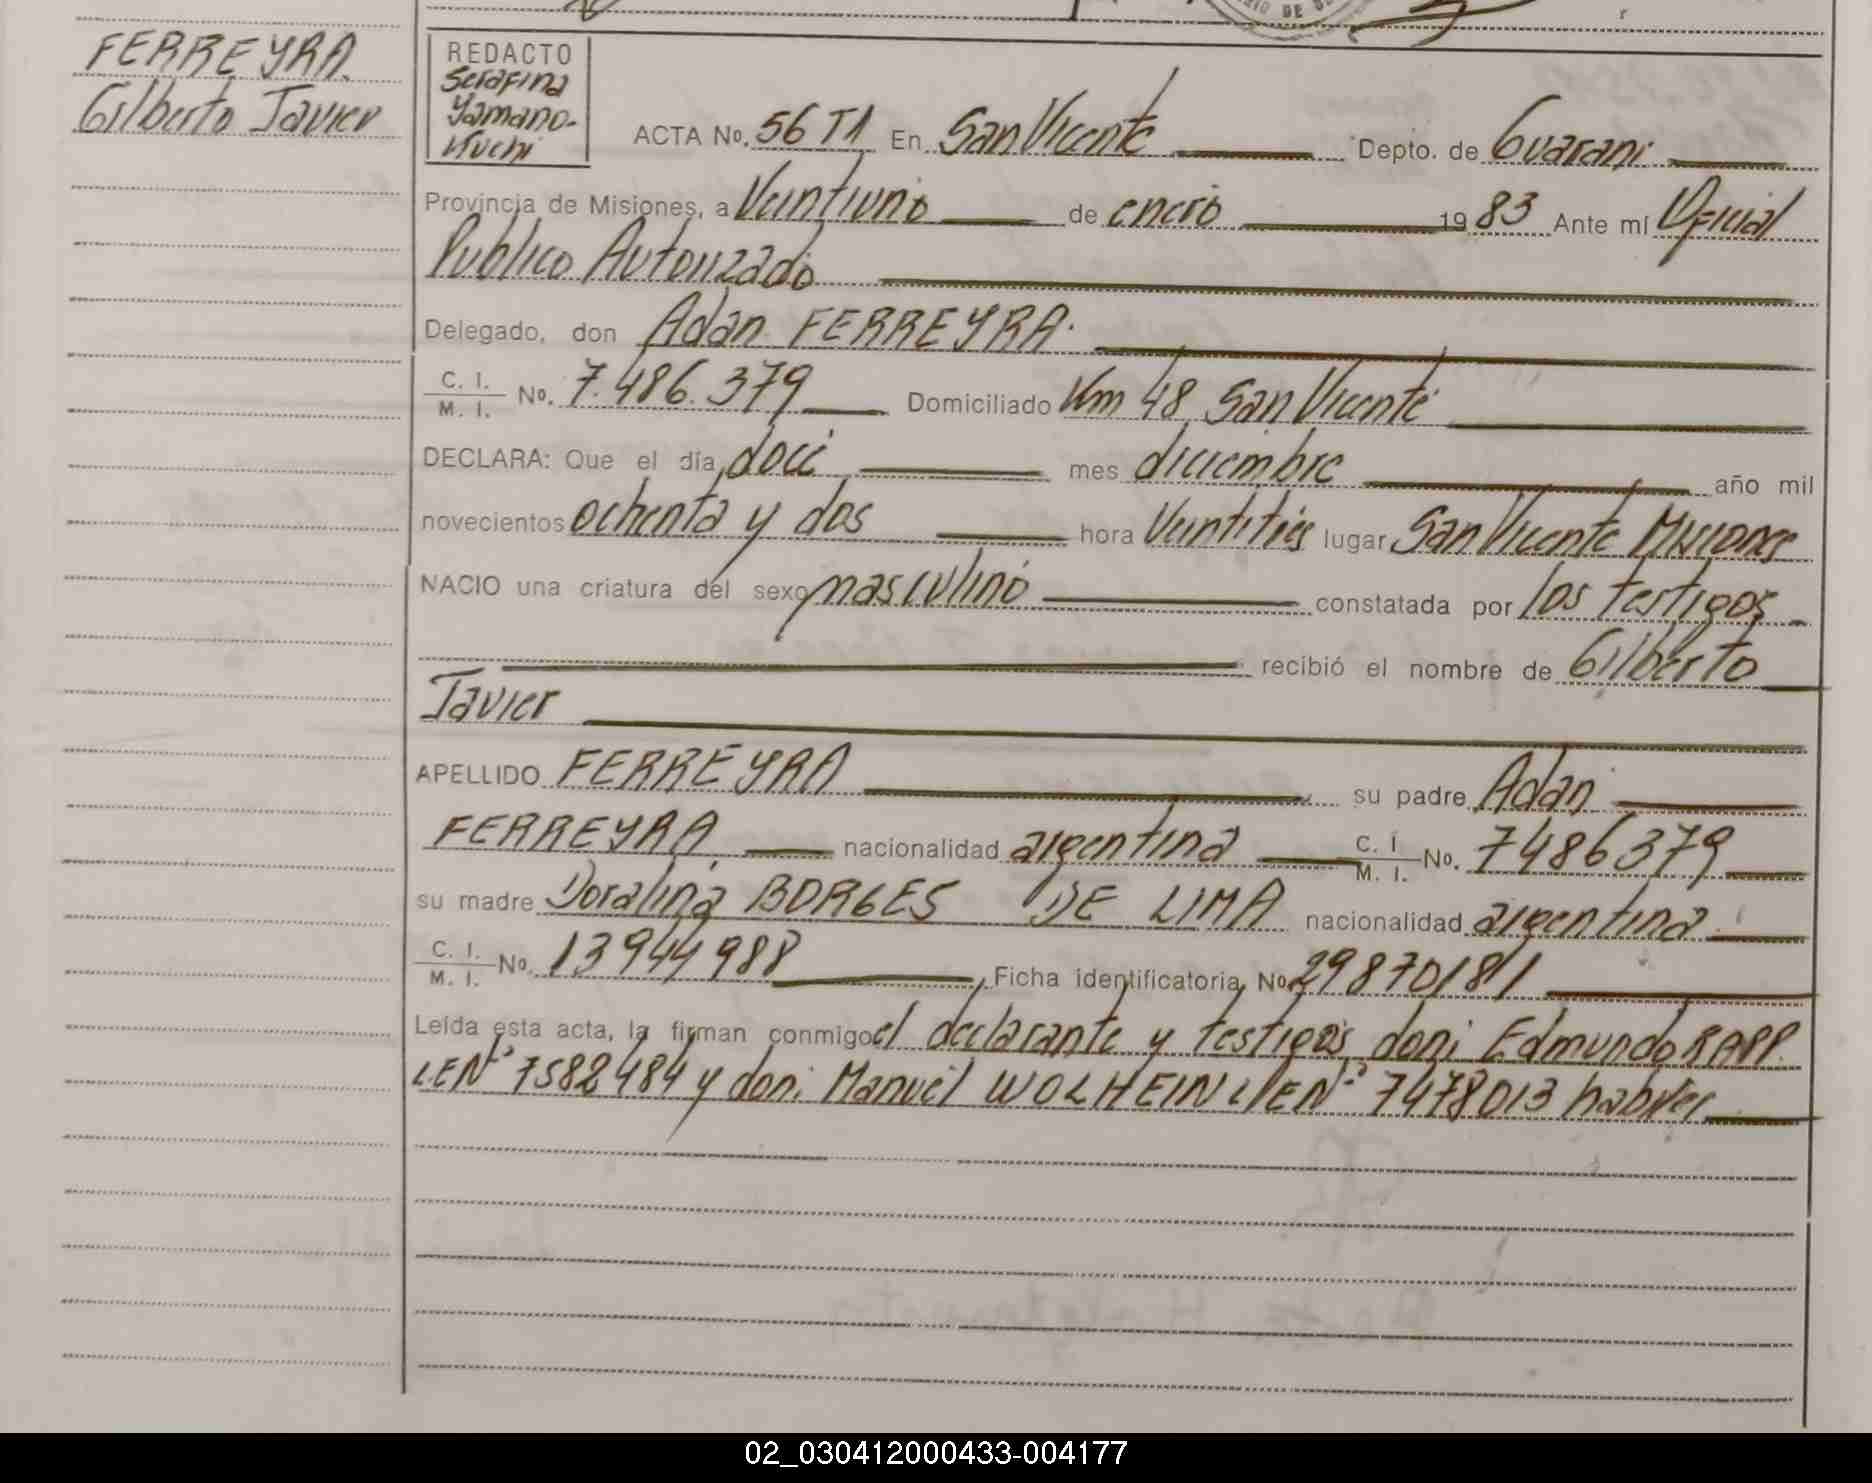 FERREYRA
Gilberto Javier
REDACTO
Serafina
Yamano-
Kuchi
ACTA No. 56 T1 En San Vicente Depto. de Guarani
Provincia de Misiones, a Veintiuno de enero 1983 Ante mí Oficial
Publico Autorizado
Delegado, don Adan FERREYRA.
C. I. / M. I. No. 7.486.379 Domiciliado Km 48 San Vicente
DECLARA: Que el día doce mes diciembre año mil
novecientos ochenta y dos hora Veintitrés lugar San Vicente Misiones
NACIO una criatura del sexo masculino constatada por los testigos
recibió el nombre de Gilberto
Javier
APELLIDO FERREYRA su padre Adan
FERREYRA nacionalidad argentina C. I. / M. I. No. 7486379
su madre Doralina BORGES DE LIMA nacionalidad argentina
C. I. / M. I. No. 13944988 Ficha identificatoria No. 29870181
Leída esta acta, la firman conmigo el declarante y testigos, don: Edmundo RAPP.
LENº 7582484 y don: Manuel WOLHEIN LENº 7478013 habiles
02_030412000433-004177